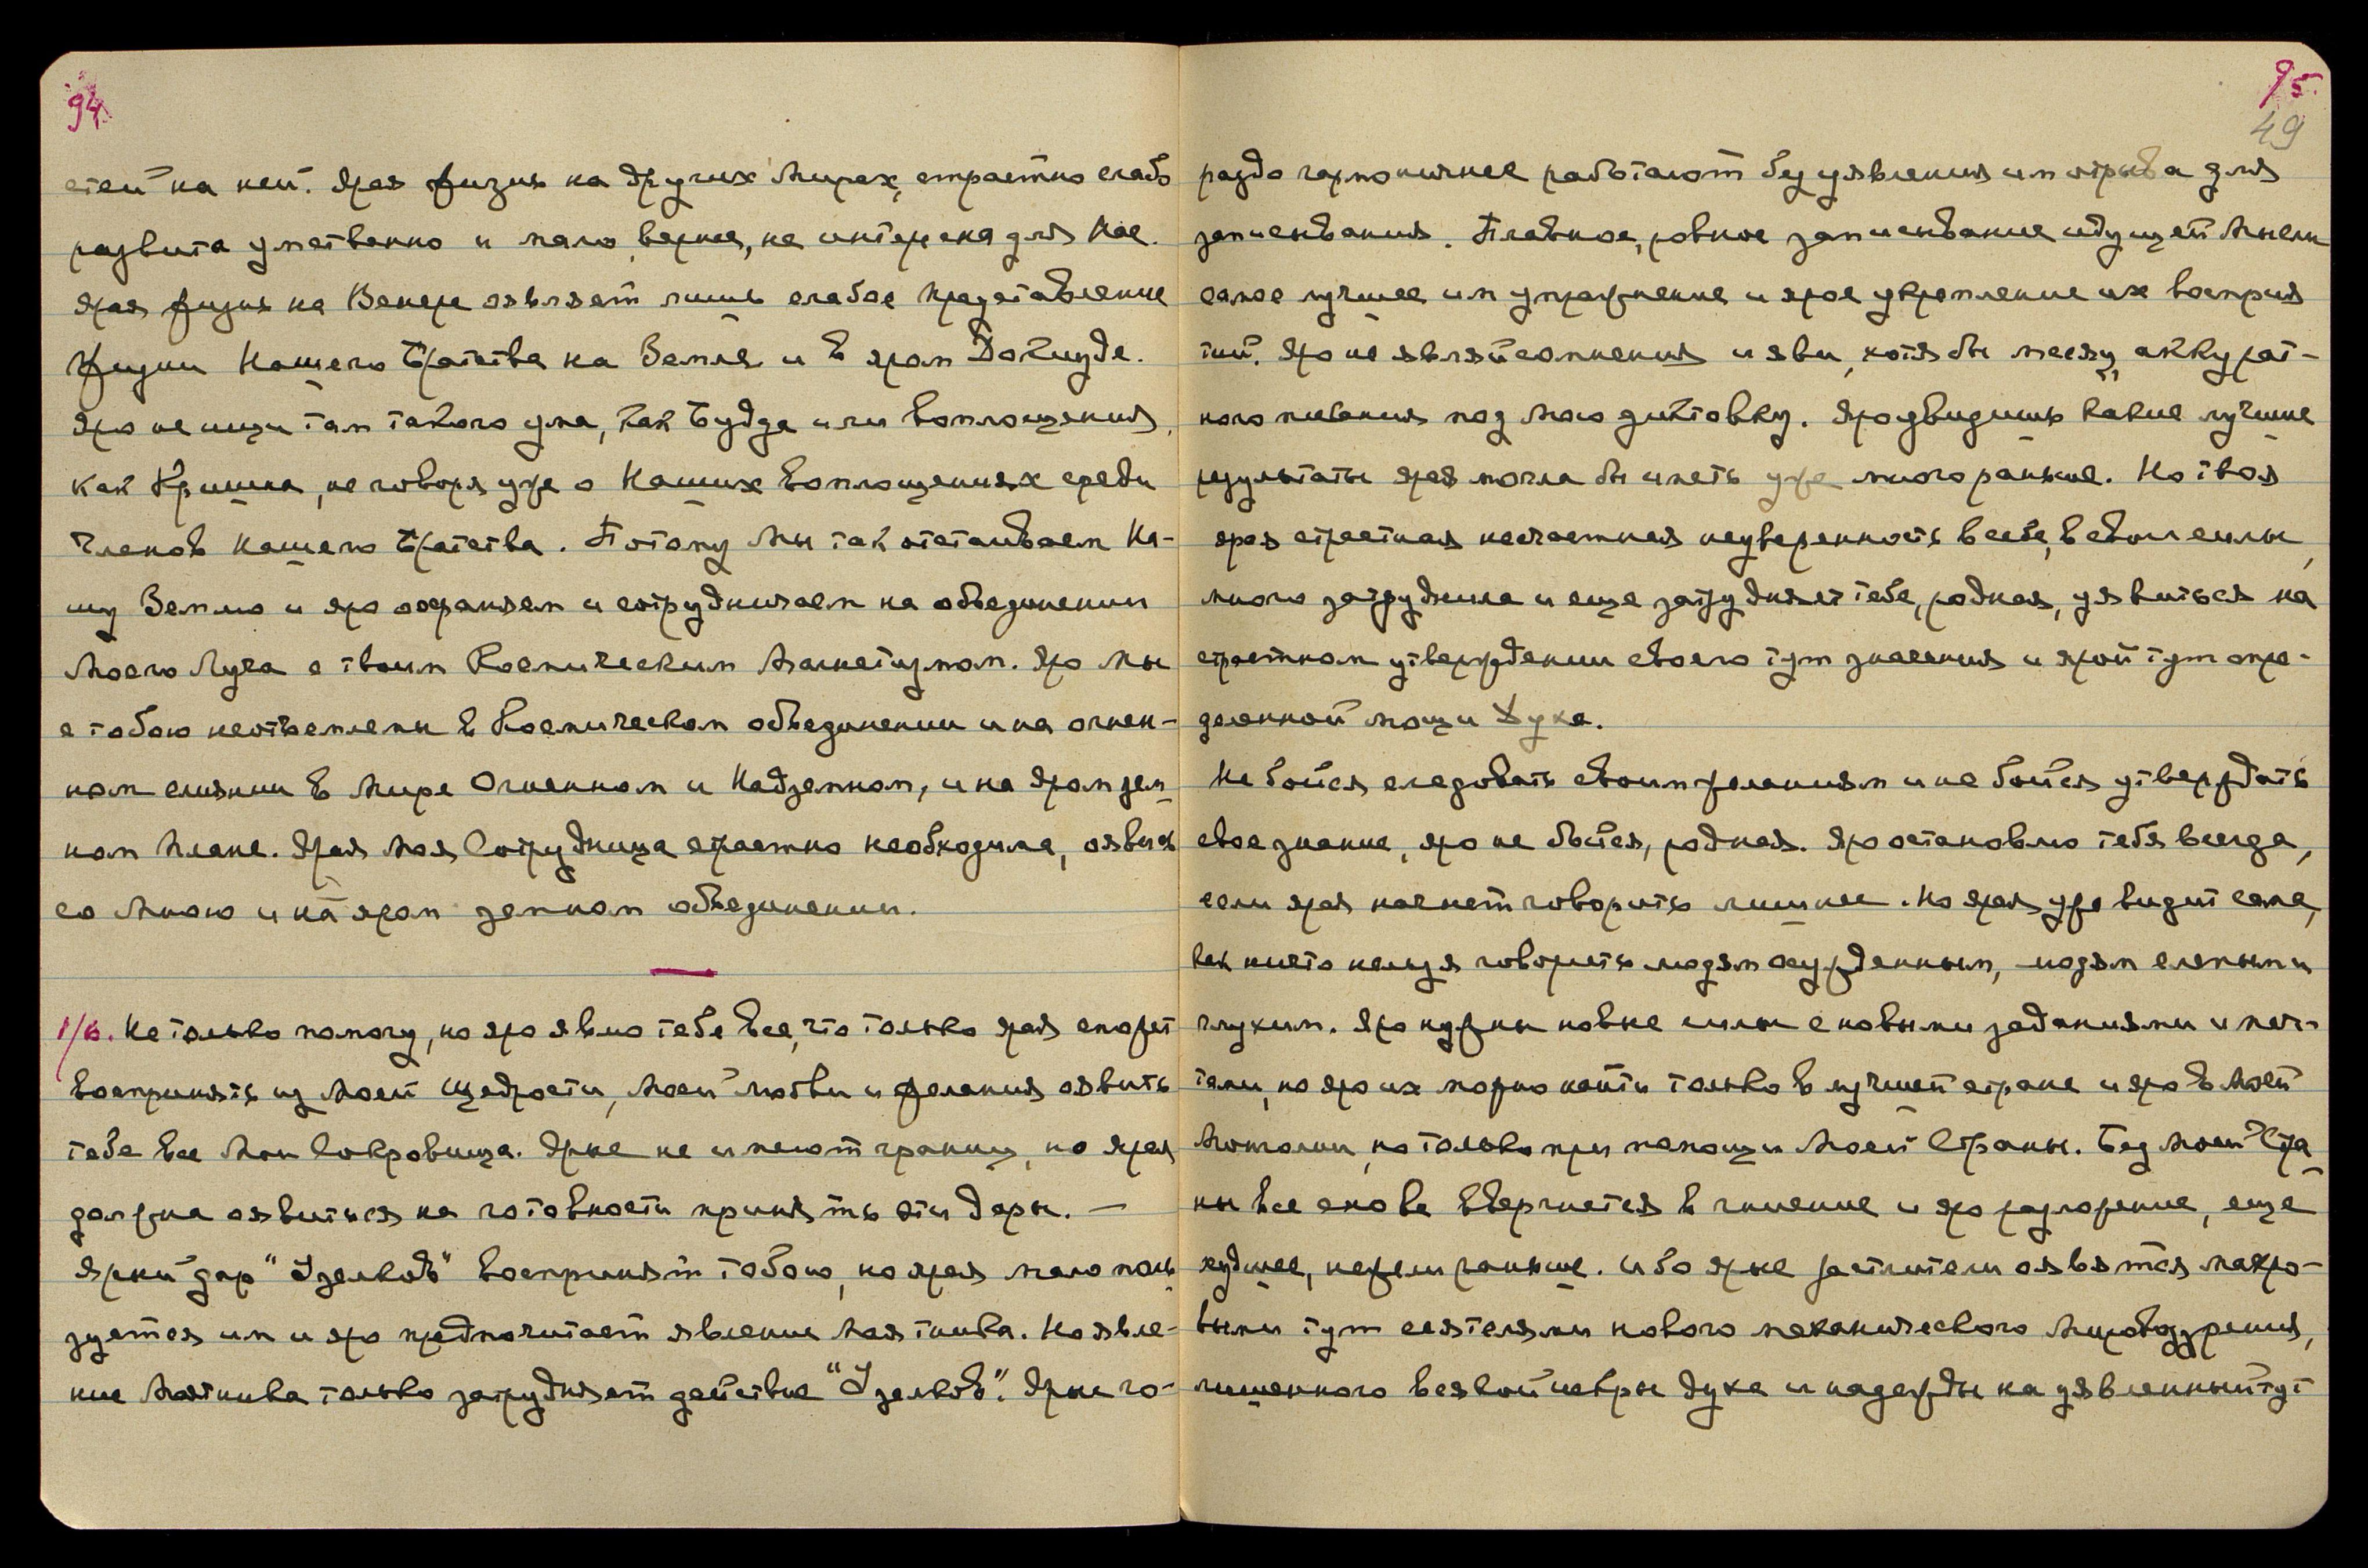 94.
стей на ней. Ярая жизнь на других Мирах, страстно слабо
развита умственно и мало, вернее, не интересна для Нас.
Ярая жизнь на Венере оявляет лишь слабое представление
жизни Нашего Братства на Земле и в яром Докиуде.
Яро не ищи там такого ума, как Будда или воплощения,
как Кришна, не говоря уже о Наших воплощениях среди
Членов Нашего Братства. Потому Мы так отстаиваем На-
шу Землю и яро охраняем и сотрудничаем на объединении
Моего Луча с твоим Космическим Магнетизмом. Яро Мы
с тобою неотъемлемы в Космическом объединении и на огнен-
ном слиянии в Мире Огненном и Надземном, и на яром зем-
ном плане. Ярая Моя Сотрудница страстно необходима, оявись
со Мною и на яром земном объединении.
1/6. Не только помогу, но яро явлю тебе все, что только ярая сможет
воспринять из Моей Щедрости, Моей любви и желания оявить
тебе все Мои Сокровища. Ярые не имеют границ, но ярая
должна оявиться на готовности принять эти дары. —
Ярый дар "Узелков" воспринят тобою, но ярая мало поль-
зуется им и яро предпочитает явление Маятника. Но явле-
ние Маятника только затрудняет действие "Узелков". Ярые го-
95.
49
раздо гармоничнее работают без уявления им отрыва для
записывания. Плавное, ровное записывание идущей Мысли
самое лучшее им упражнение и ярое укрепление их восприя
тий. Яро не являй сомнения и яви, хотя бы месяц, аккурат-
ного писания под Мою диктовку. Яро увидишь какие лучшие
результаты ярая могла бы иметь уже много раньше. Но твоя
ярая страстная несчастная неуверенность в себе, в свои силы,
много затруднила и еще затрудняет тебе, родная, уявиться на
страстном утверждении своего тут значения и ярой тут опре-
деленной мощи Духа.
Не бойся следовать своим желаниям и не бойся утверждать
свое знание, яро не бойся, родная. Яро остановлю тебя всегда,
если ярая начнет говорить лишнее. Но ярая уже видит сама,
как часто нельзя говорить людям осужденным, людям слепым и
глухим. Яро нужны новые силы с новыми заданиями и меч-
тами, но яро их можно найти только в лучшей стране и яро в Моей
Монголии, но только при помощи Моей Страны. Без Моей Стра
ны все снова ввергнется в гниение и яро разложение, еще
худшее, нежели раньше. Ибо ярые растлители оявятся махро-
выми тут сеятелями нового механического Мировоззрения,
лишенного всякой искры духа и надежды на уявленный тут